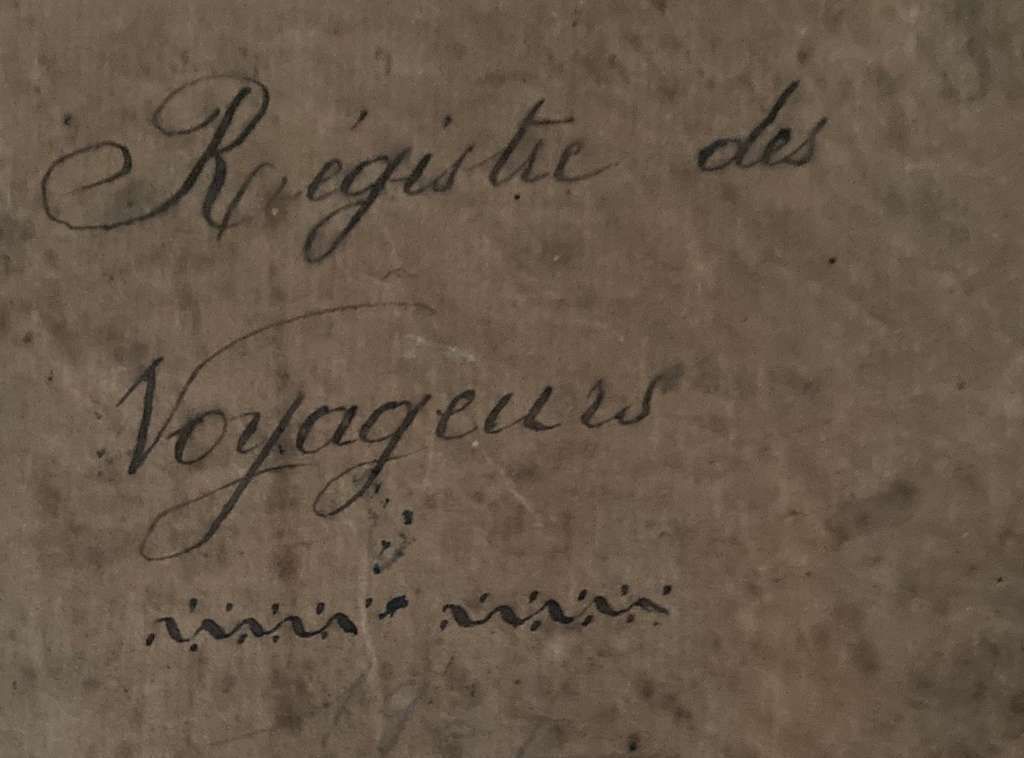 Régistre des
Voyageurs